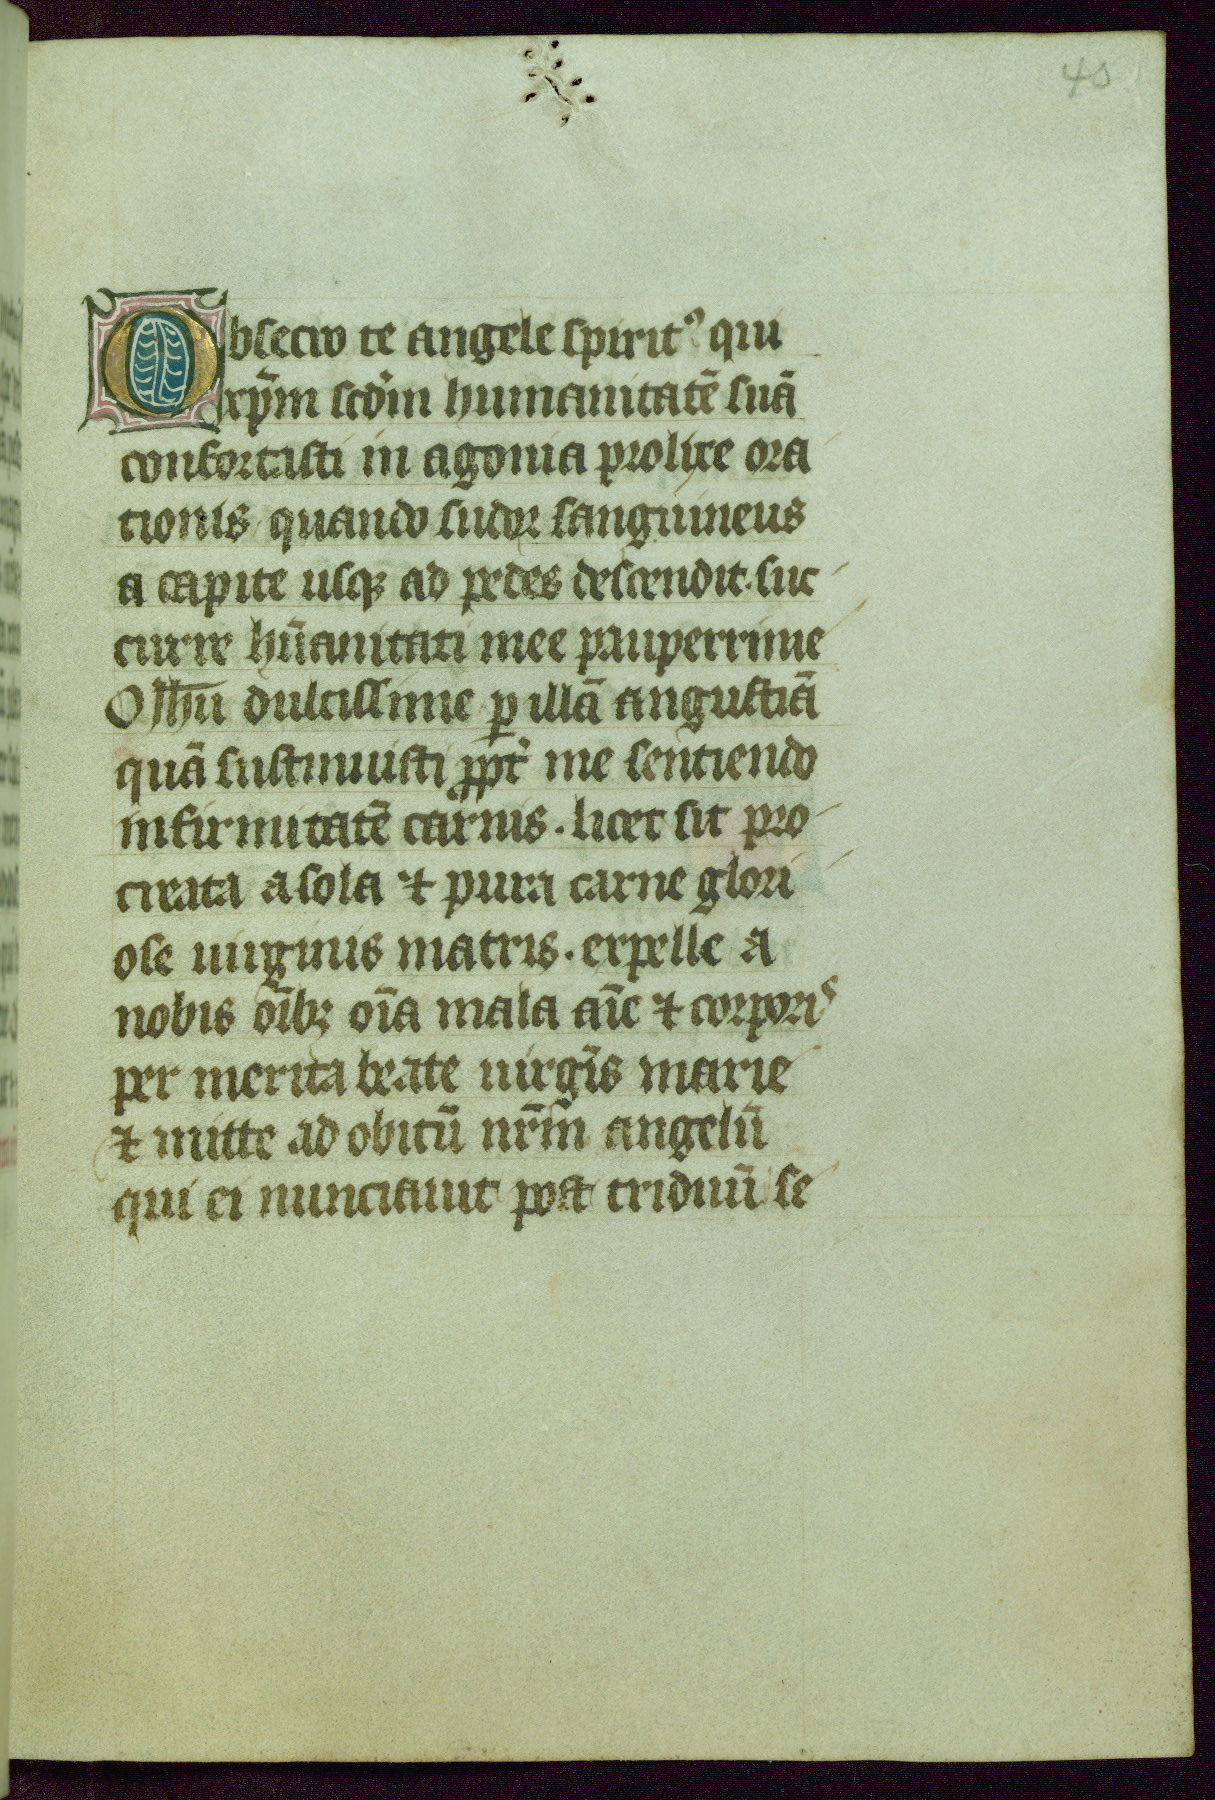 40
Obsecro te angele spiritꝰ qui
xp̄m scd̄m humanitatē suā
confortasti in agonia prolixe ora
tionis quando sudor sanguineus
a capite usqꝫ ad pedes descendit. suc
curre hūanitati mee pauperrime
O Jhū dulcissime ꝑ illā angustiā
quā sustinuisti ꝓpt̄ me sentiendo
infirmitatē carnis. licet sit pro
creata a sola ⁊ pura carne glori
ose uirginis matris. expelle a
nobis oīb; oīa mala aīe ⁊ corporis
per merita beate uirgīs marie
⁊ mitte ad obitū nr̄m angelū
qui ei nunciauit post triduū se